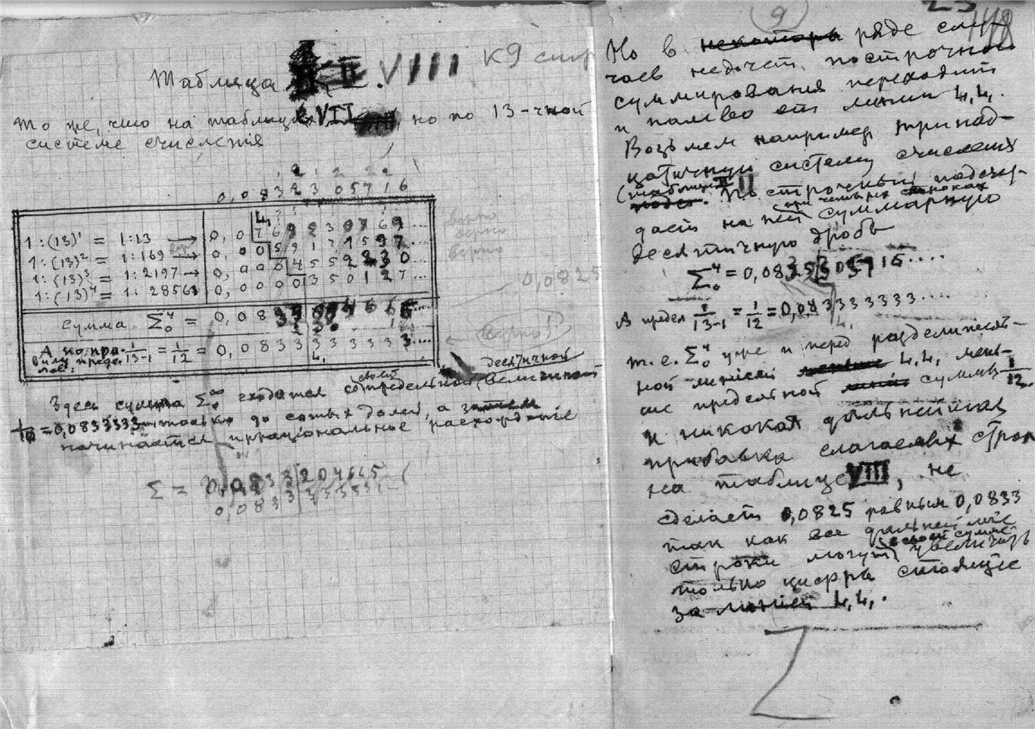 Таблица VIII
К 9 стр
То же, что на таблице VII но по 13-чной
системе счисления
0,0832305716
1:(13)¹ = 1:13 → 0,0769230769....
1:(13)² = 1:169 → 0,0059171597....
1:(13)³ = 1:2197 → 0,000455
1:(13)⁴ = 1:28561 0,000035012
Сумма Σ₀⁴ = 0,083
верно
верно
верно
0,0825
А по пра- 1/13-1 = 1/12 = 0,0833333333....
Здесь сумма Σ₀^∞ сходится со своей предельной десятичной величиной
=0,0833333 только до сотых долей, а
начинается иррациональное расхождение
Σ = 0,0833204645
0,0833333333
9
148
Но в ряде слу-
чаев недочет построчного
суммирования переходит
и налево от линии L,L.
Возьмем например тринад-
цатичную систему счисления
(таблица II построчный подсчет
при четырех строках
даст на ней суммарную
десятичную дробь
Σ₀⁴ = 0,0825305716....
А предел 1/13-1 = 1/12 = 0,0833333333....
т.е. Σ₀⁴ уже и перед разделитель-
ной линией L,L, мень-
ше предельной суммы 1/12.
И никакая дальнейшая
прибавка слагаемых строк
на таблице VIII, не
сделает 0,0825 равным 0,0833
так как все дальнейшие
строки могут в своей сумме увеличить
только цифры стоящие
за линией L,L,.